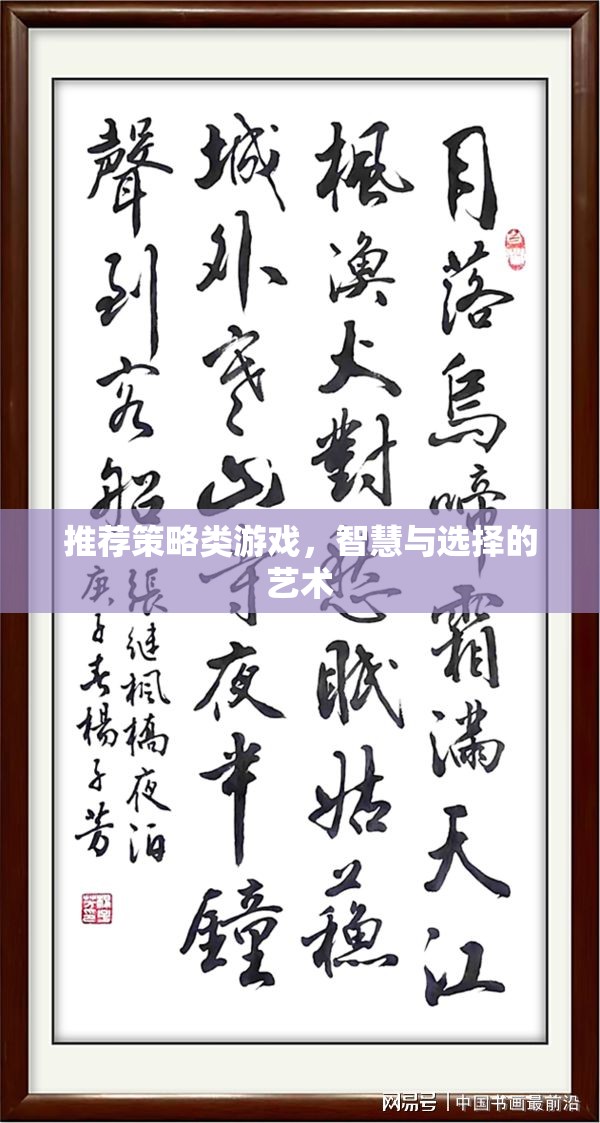 月落烏啼霜滿天江
楓漁火對愁眠姑蘓
城外寒山寺夜半鐘
聲到客船
張継楓橋夜泊
庚子春楊子芳
推荐策略类游戏，智慧与选择的
艺术
网易号 | 中国书画最前沿